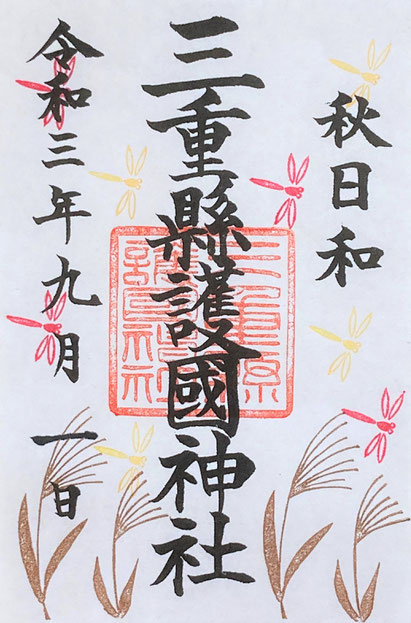 秋日和
三重縣護國神社
三重県護国神社
令和三年九月一日